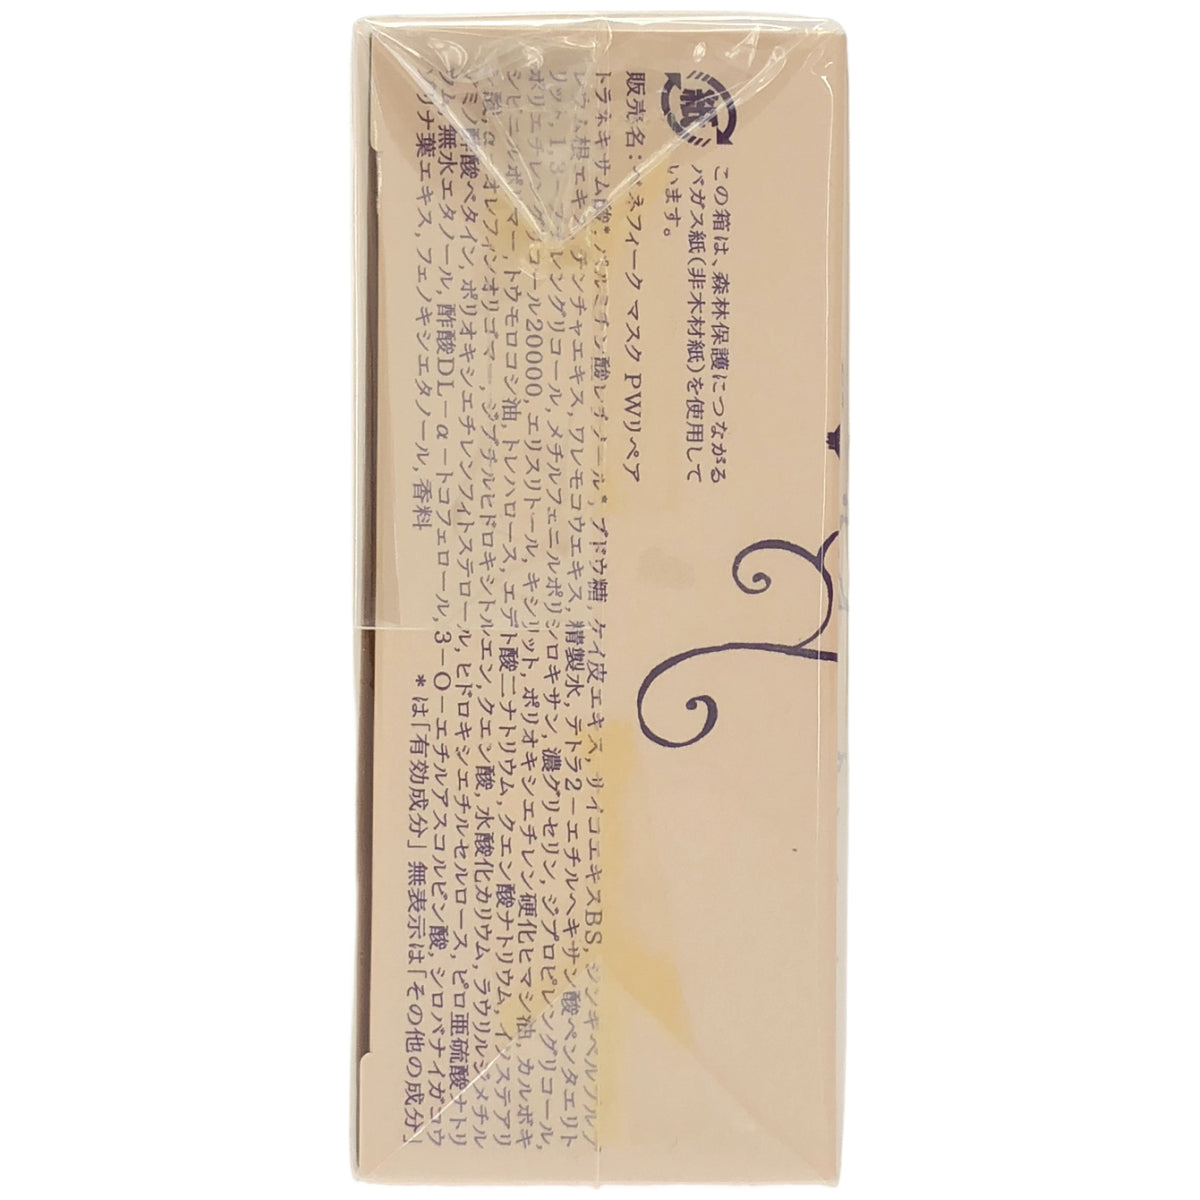 紙
この箱は、森林保護につながる
バガス紙(非木材紙)を使用して
います。
販売名: ベネフィーク マスク PWリペア
トラネキサム酸*, パルミチン酸レチノール*, ブドウ糖, ケイ皮エキス, サイコエキスBS, ジンギベルプルプ
レウム根エキス, テンチャエキス, ワレモコウエキス, 精製水, テトラ2-エチルヘキサン酸ペンタエリト
リット, 1,3-ブチレングリコール, メチルフェニルポリシロキサン, 濃グリセリン, ジプロピレングリコール,
ポリエチレングリコール20000, エリスリトール, キシリット, ポリオキシエチレン硬化ヒマシ油, カルボキ
シビニルポリマー, トウモロコシ油, トレハロース, エデト酸二ナトリウム, クエン酸ナトリウム, イソステアリ
ン酸, α-オレフィンオリゴマー, ジブチルヒドロキシトルエン, クエン酸, 水酸化カリウム, ラウリルジメチル
アミノ酢酸ベタイン, ポリオキシエチレンフィトステロール, ヒドロキシエチルセルロース, ピロ亜硫酸ナトリ
ウム, 無水エタノール, 酢酸DL-α-トコフェロール, 3-O-エチルアスコルビン酸, シロバナイガコウ
ゾリナ葉エキス, フェノキシエタノール, 香料
*は「有効成分」無表示は「その他の成分」